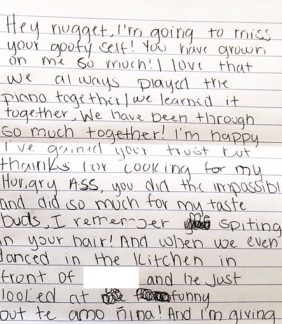 Hey nugget, I'm going to miss
your goofy self! You have grown
on me so much! I love that
we always played the
piano together, we learned it
together. We have been through
so much together! I'm happy
I've gained your trust but
thanks for cooking for my
Hungry ASS, you did the impossibl
and did so much for my taste
buds, I remember spiting
in your hair! And when we even
danced in the kitchen in
front of and he just
looked at funny
but te amo niña! And I'm giving